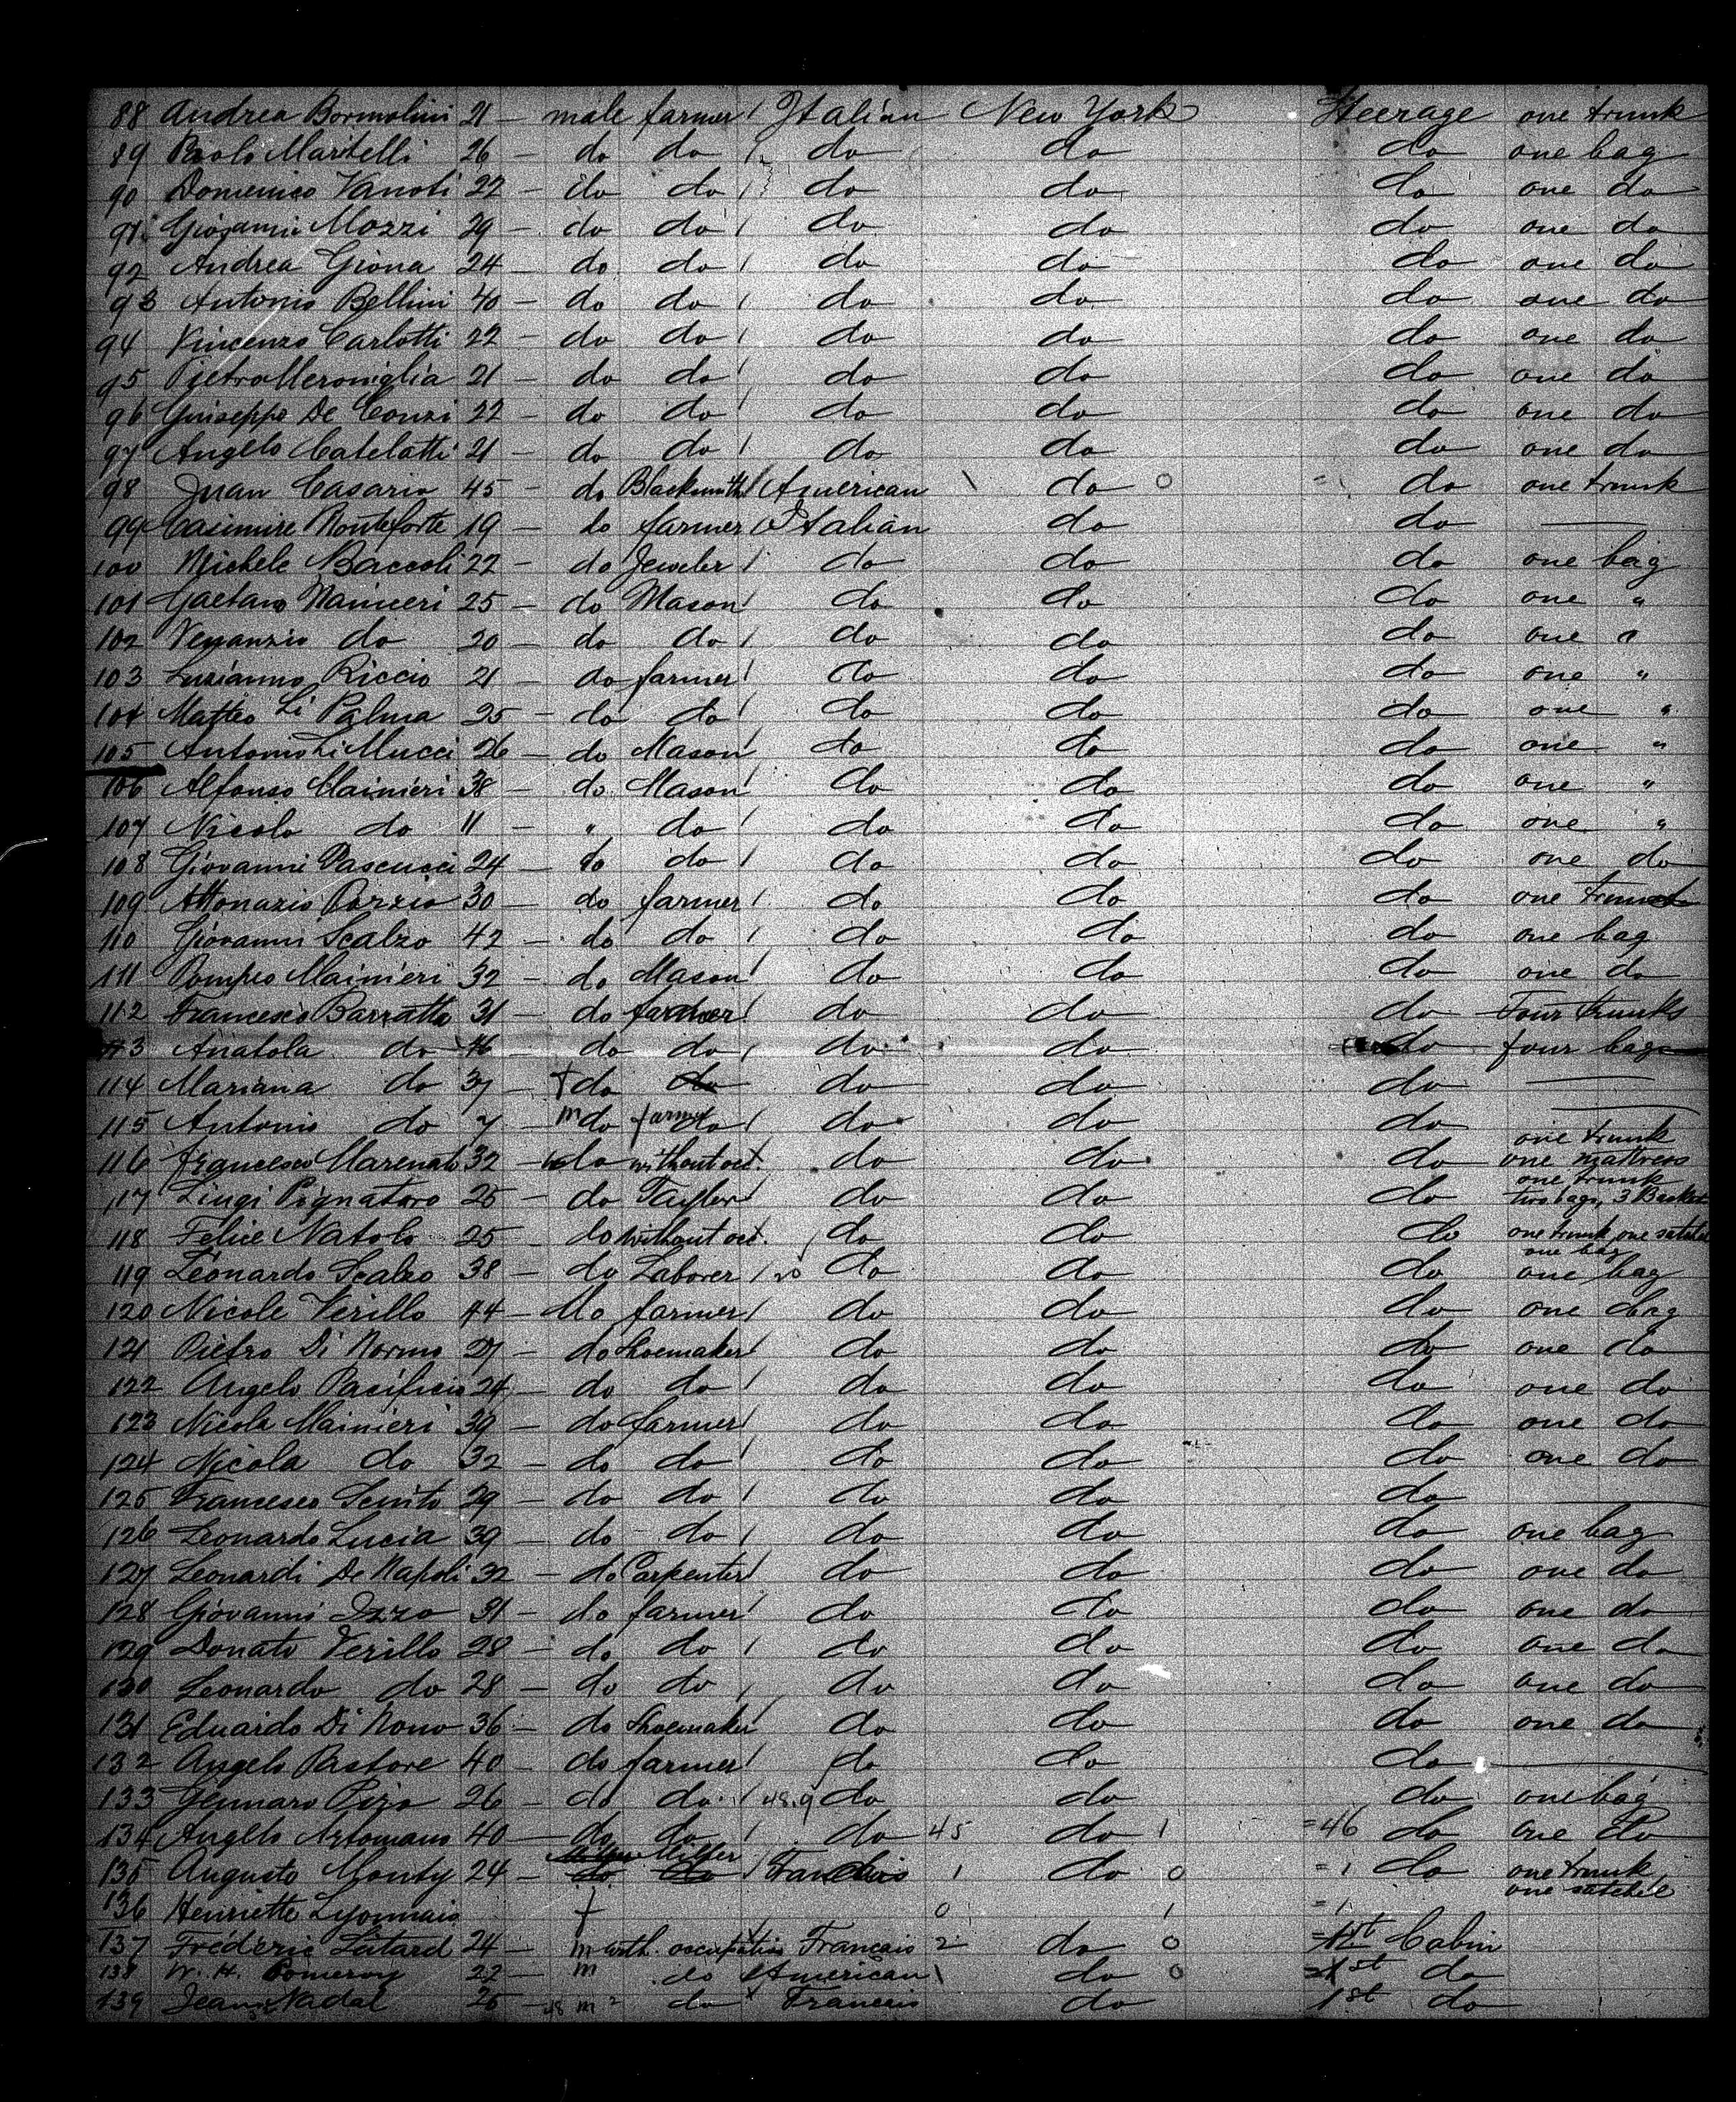 88 Andrea Bormolini 21 — male farmer / Italian New York Steerage one trunk
89 Paolo Martelli 26 — do do / do do do one bag
90 Domenico Vanoti 22 — do do / do do do one do
91 Giovanni Mozzi 29 — do do / do do do one do
92 Andrea Giona 24 — do do / do do do one do
93 Antonio Bellini 40 — do do / do do do one do
94 Vincenzo Carlotti 22 — do do / do do do one do
95 Pietro Meroniglia 21 — do do / do do do one do
96 Guiseppe De Conzi 22 — do do / do do do one do
97 Angelo Catelatti 21 — do do / do do do one do
98 Juan Casario 45 — do Blacksmith / American \ do 0 = 1 do one trunk
99 Casimire Monteforte 19 — do farmer / Italian do do —
100 Michele Baccoli 22 — do Jeweler / do do do one bag
101 Gaetano Mainieri 25 — do Mason / do do do one "
102 Venanzio do 20 — do do / do do do one "
103 Luzianno Riccio 21 — do farmer / do do do one "
104 Matteo Li Palma 25 — do do / do do do one "
105 Antonio Li Mucci 26 — do Mason / do do do one "
106 Alfonso Mainieri 38 — do Mason / do do do one "
107 Nicola do 11 — " do / do do do one "
108 Giovanni Pascucci 24 — do do / do do do one do
109 Attonazio Pozzio 30 — do farmer / do do do one trunk
110 Giovanni Scalzo 42 — do do / do do do one bag
111 Pompeo Mainieri 32 — do Mason / do do do one do
112 Francesco Barratto 31 — do farmer / do do do Four trunks
113 Anatola do 16 — do do / do do do four bags
114 Mariana do 37 — f do do do do do —
115 Antonio do 7 — m do farmer do / do do do —
one trunk
116 Francesco Marenato 32 — do without oct. do do do one mattress
one trunk
117 Liugi Pignataro 25 — do Tayler / do do do two bags, 3 Baskets
118 Felice Natolo 25 — do without oct. do do do one trunk, one satchel
one bag
119 Leonardo Scalzo 38 — do Laborer / 20 do do do one bag
120 Nicole Verillo 44 — do farmer / do do do one bag
121 Pietro Di Normo 27 — do Shoemaker / do do do one do
122 Angelo Pacificio 24 — do do / do do do one do
123 Nicola Mainieri 39 — do farmer / do do do one do
124 Nicola do 32 — do do / do do do one do
125 Francesco Senito 29 — do do / do do do —
126 Leonardo Lucia 39 — do do / do do do one bag
127 Leonardi De Napoli 32 — do Carpenter / do do do one do
128 Giovanni Izzo 31 — do farmer / do do do one do
129 Donato Verillo 28 — do do / do do do one do
130 Leonardo do 28 — do do / do do do one do
131 Eduardo Di Nono 36 — do Shoemaker / do do do one do
132 Angelo Pastore 40 — do farmer / do do do —
133 Gennaro Pizo 26 — do do / 48.9 do do do one bag
134 Angelo 40 — do do / do 45 do 1 =46 do one do
Miller
135 Augusto Monty 24 — do do / Francais 1 do 0 = 1 do one trunk
one satchel
136 Henriette Lyonnais f 0 1 = 1
137 Fréderic Létard 24 — m with. occupation Francais 2 do 0 1st Cabin
138 W. H. Pomeroy 22 — m do American \ do 0 1st do
139 Jean Nadal 25 — 48 m 2 do x Francais do 1st do